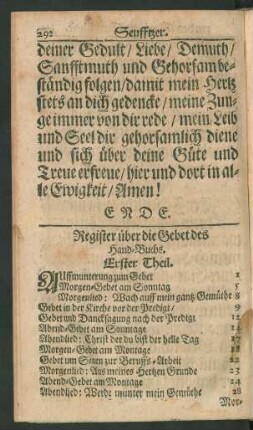 292 Seufftzer.
deiner Gedult/ Liebe/ Demuth/
Sanfftmuth und Gehorsam be-
ständig folgen/ damit mein Hertz
stets an dich gedencke/ meine Zun-
ge immer von dir rede/ mein Leib
und Seel dir gehorsamlich diene
und sich über deine Güte und
Treue erfreue/ hier und dort in al-
le Ewigkeit/ Amen!
ENDE.
Register über die Gebet des
Hand-Buchs.
Erster Theil.
AUffmunterung zum Gebet 1
Morgen-Gebet am Sonntag 5
Morgenlied: Wach auff mein gantz Gemüthe 8
Gebet in der Kirche vor der Predigt/ 9
Gebet und Dancksagung nach der Predigt 12
Abend-Gebet am Sonntage 14
Abendlied: Christ der du bist der helle Tag 17
Morgen-Gebet am Montage 18
Gebet um Segen zur Beruffs-Arbeit 22
Morgenlied: Aus meines Hertzen Grunde 23
Abend-Gebet am Montage 24
Abendlied: Werde munter mein Gemüthe 28
Mor-